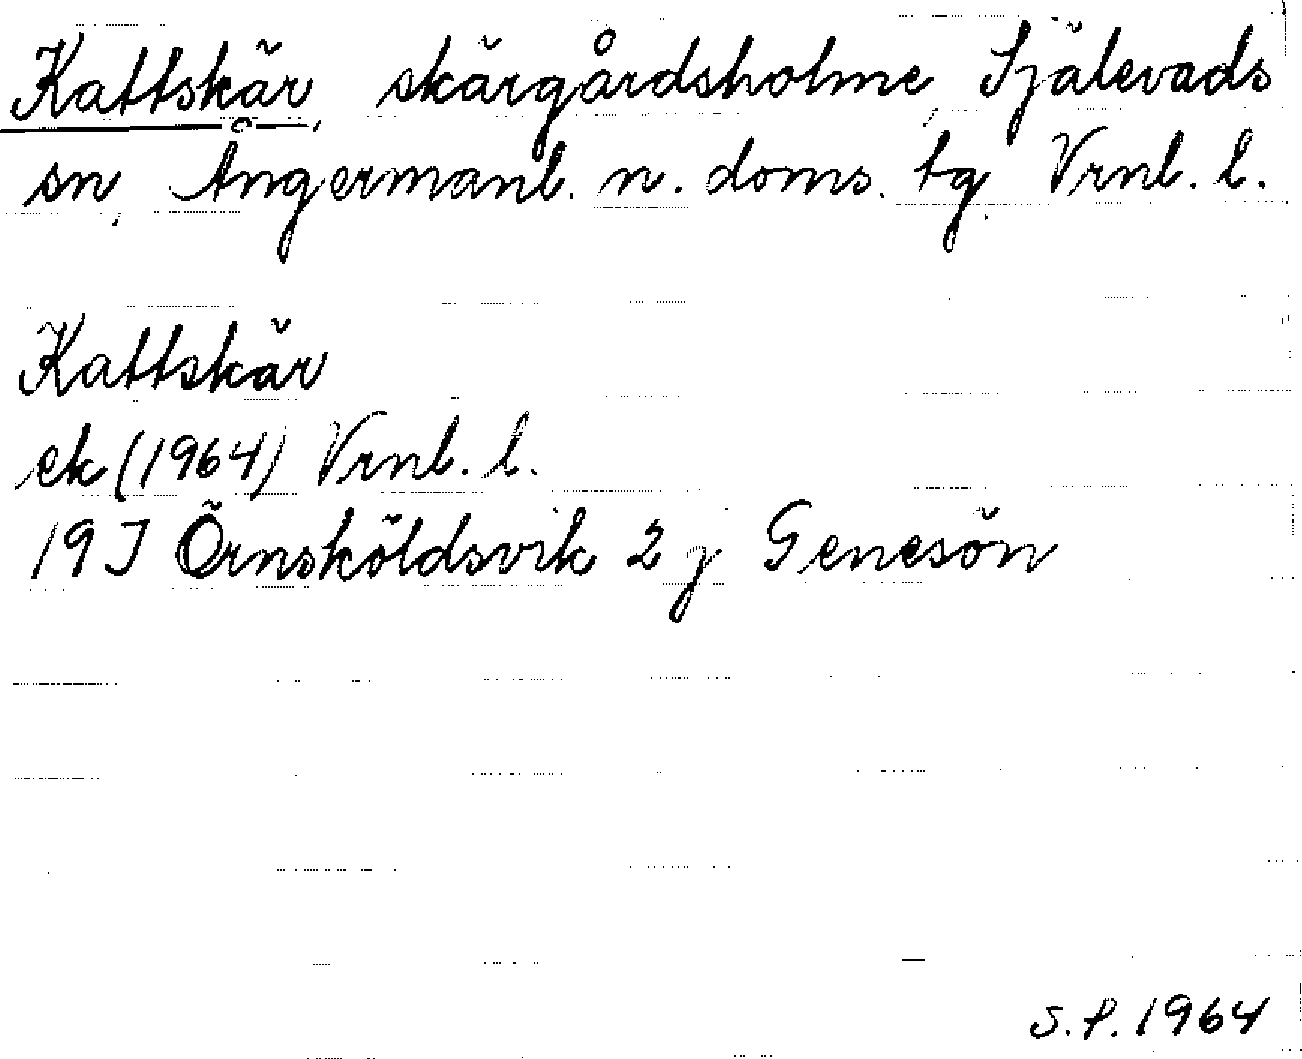 Kattskär, skärgårdsholme, Själevads
sn, Ångermanl. n. doms. tg, Vrnl. l.
Kattskär
ek (1964) Vrnl. l.
19J Örnsköldsvik 2 j Genesön
S.P. 1964